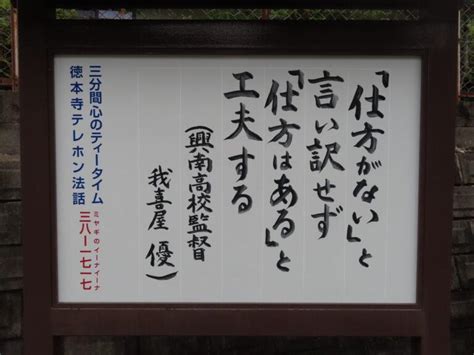 「仕方がない」と
言い訳せず
「仕方はある」と
工夫する
(興南高校監督
我喜屋 優)
三分間心のティータイム
徳本寺テレホン法話
ミヤギのイーナイーナ
三八ー一七一七